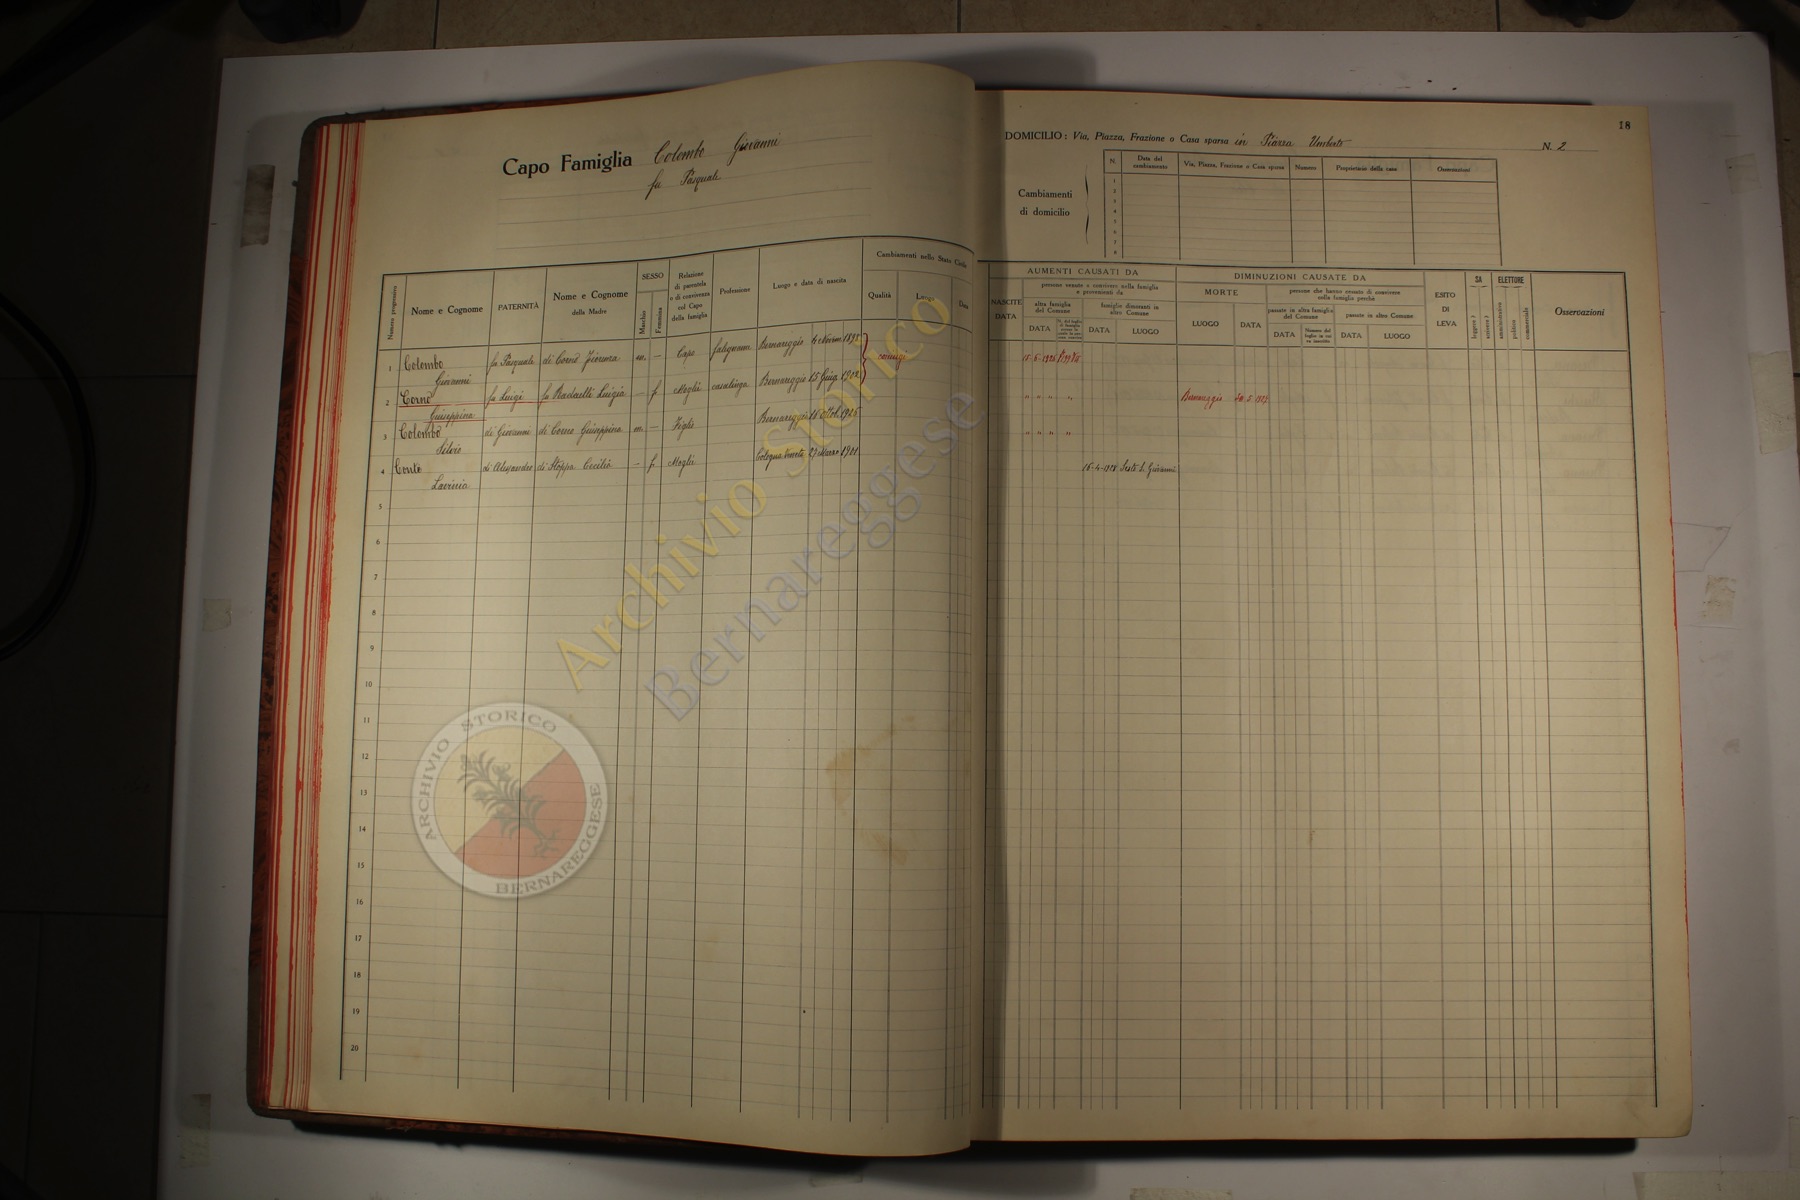 18
Capo Famiglia Colombo Giovanni
fu Pasquale
DOMICILIO: Via, Piazza, Frazione o Casa sparsa in Piazza Umberto N. 2
Cambiamenti
di domicilio
N. Data del cambiamento Via, Piazza, Frazione o Casa sparsa Numero Proprietario della casa Osservazioni
1
2
3
4
5
6
7
8
Numero progressivo
Nome e Cognome
PATERNITÀ
Nome e Cognome
della Madre
SESSO
Maschio
Femmina
Relazione
di parentela
o di convivenza
col Capo
della famiglia
Professione
Luogo e data di nascita
Cambiamenti nello Stato Civile
Qualità
Luogo
Data
NASCITE
DATA
AUMENTI CAUSATI DA
persone venute a convivere nella famiglia
e provenienti da
altra famiglia
del Comune
DATA
famiglie dimoranti in
altro Comune
DATA LUOGO
DIMINUZIONI CAUSATE DA
MORTE
LUOGO DATA
persone che hanno cessato di convivere
colla famiglia perchè
passate in altra famiglia
del Comune
DATA
passate in altro Comune
DATA LUOGO
ESITO
DI
LEVA
SA
leggere?
scrivere?
ELETTORE
amministrativo
politico
commerciale
Osservazioni
1 Colombo fu Pasquale di Cornò m. — Capo falegname Bernareggio 1898 coniugi 15-6-1926
Giovanni
2 Cornò fu Luigi fu Radaelli Luigia — f. Moglie casalinga Bernareggio 15 Giug. 1902 " " " " Bernareggio
Giuseppina
3 Colombo di Giovanni di Cornò Giuseppina m. — Figlio Bernareggio 16 Ottob. 1926 " " " "
Silvio
4 Conte di Alessandro di Stoppa Cecilia — f. Moglie Cologna Veneta 27 Marzo 1901 16-4-1928 Sesto S. Giovanni
Lavinia
5
6
7
8
9
10
11
12
13
14
15
16
17
18
19
20
Archivio Storico
Bernareggese
ARCHIVIO STORICO
BERNAREGGESE